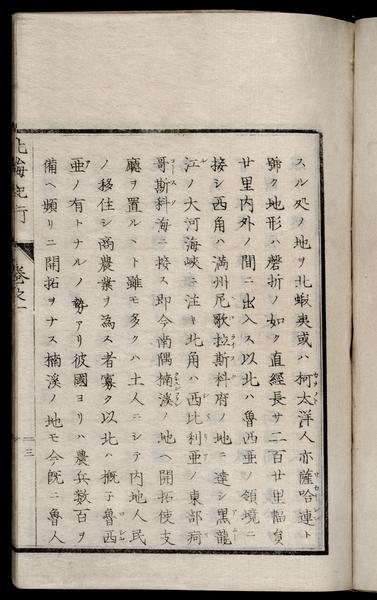 スル処ノ地ヲ北蝦夷或ハ柯太洋人亦薩哈連ト
號ク地形ハ磬折ノ如ク直經長サ二百廿里幅員
廿里内外ノ間ニ出入ス以北ハ魯西亜ノ領境ニ
接シ西角ハ満州尼歌拉斯科府ノ地ニ達シ黒龍
江ノ大河海峡ニ注キ北角ハ西比利亜ノ東部
哥斯科海ニ接ス即今南隅楠溪ノ地ヘ開拓使支
廳ヲ置ルヽト雖モ多クハ土人ニシテ内地人民
ノ移住シ商農業ヲ為ス者寡ク以北ハ概子魯西
亜ノ有トナルノ勢アリ彼國ヨリハ農兵数百ヲ
備ヘ頻リニ開拓ヲナス楠溪ノ地モ今既ニ魯人
北海紀行 巻之一 二三